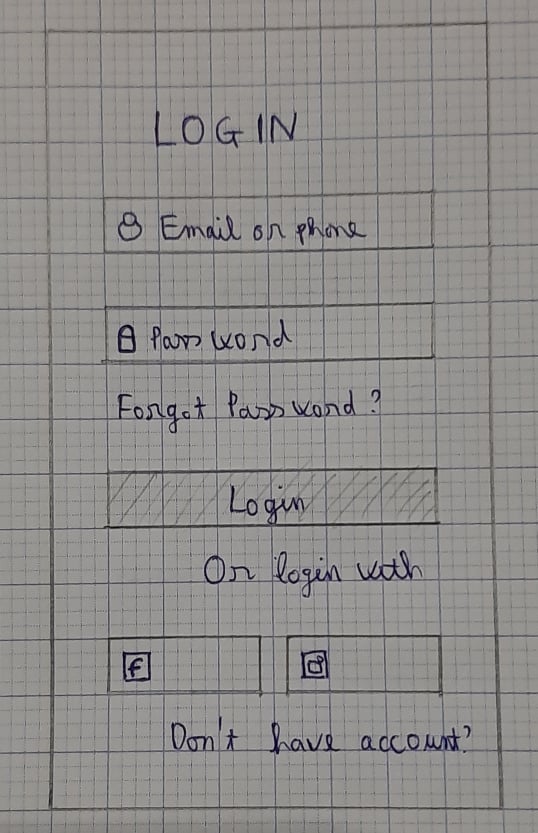 LOGIN
Email or phone
Password
Forgot Password?
Login
Or login with
f
Don't have account?